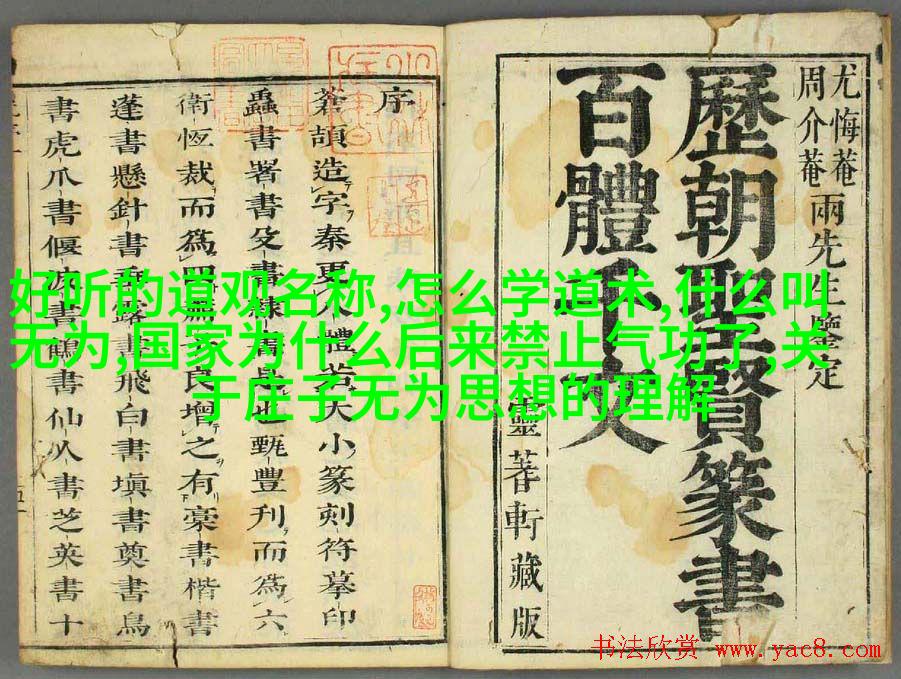 好听的道观名称,怎么学道术,什么叫
无为,国家为什么后来禁止气功了,关
于庄子无为思想的理解
尤悔菴
周介菴
兩先生鑒定
歷朝聖賢篆書
百體千文
靈蓍軒藏版
序
蒼頡造字秦更八體若大小篆刻符摹印
蟲書署書殳書隸書是也甄豐刋而爲六
衛恆裁而爲四 良增之有稾書楷書
蓬書懸針書垂露書飛白書塡書奠書鳥
書虎爪書偃波書鶴書仙人書芝英書十
书法欣赏 www.yac8.com